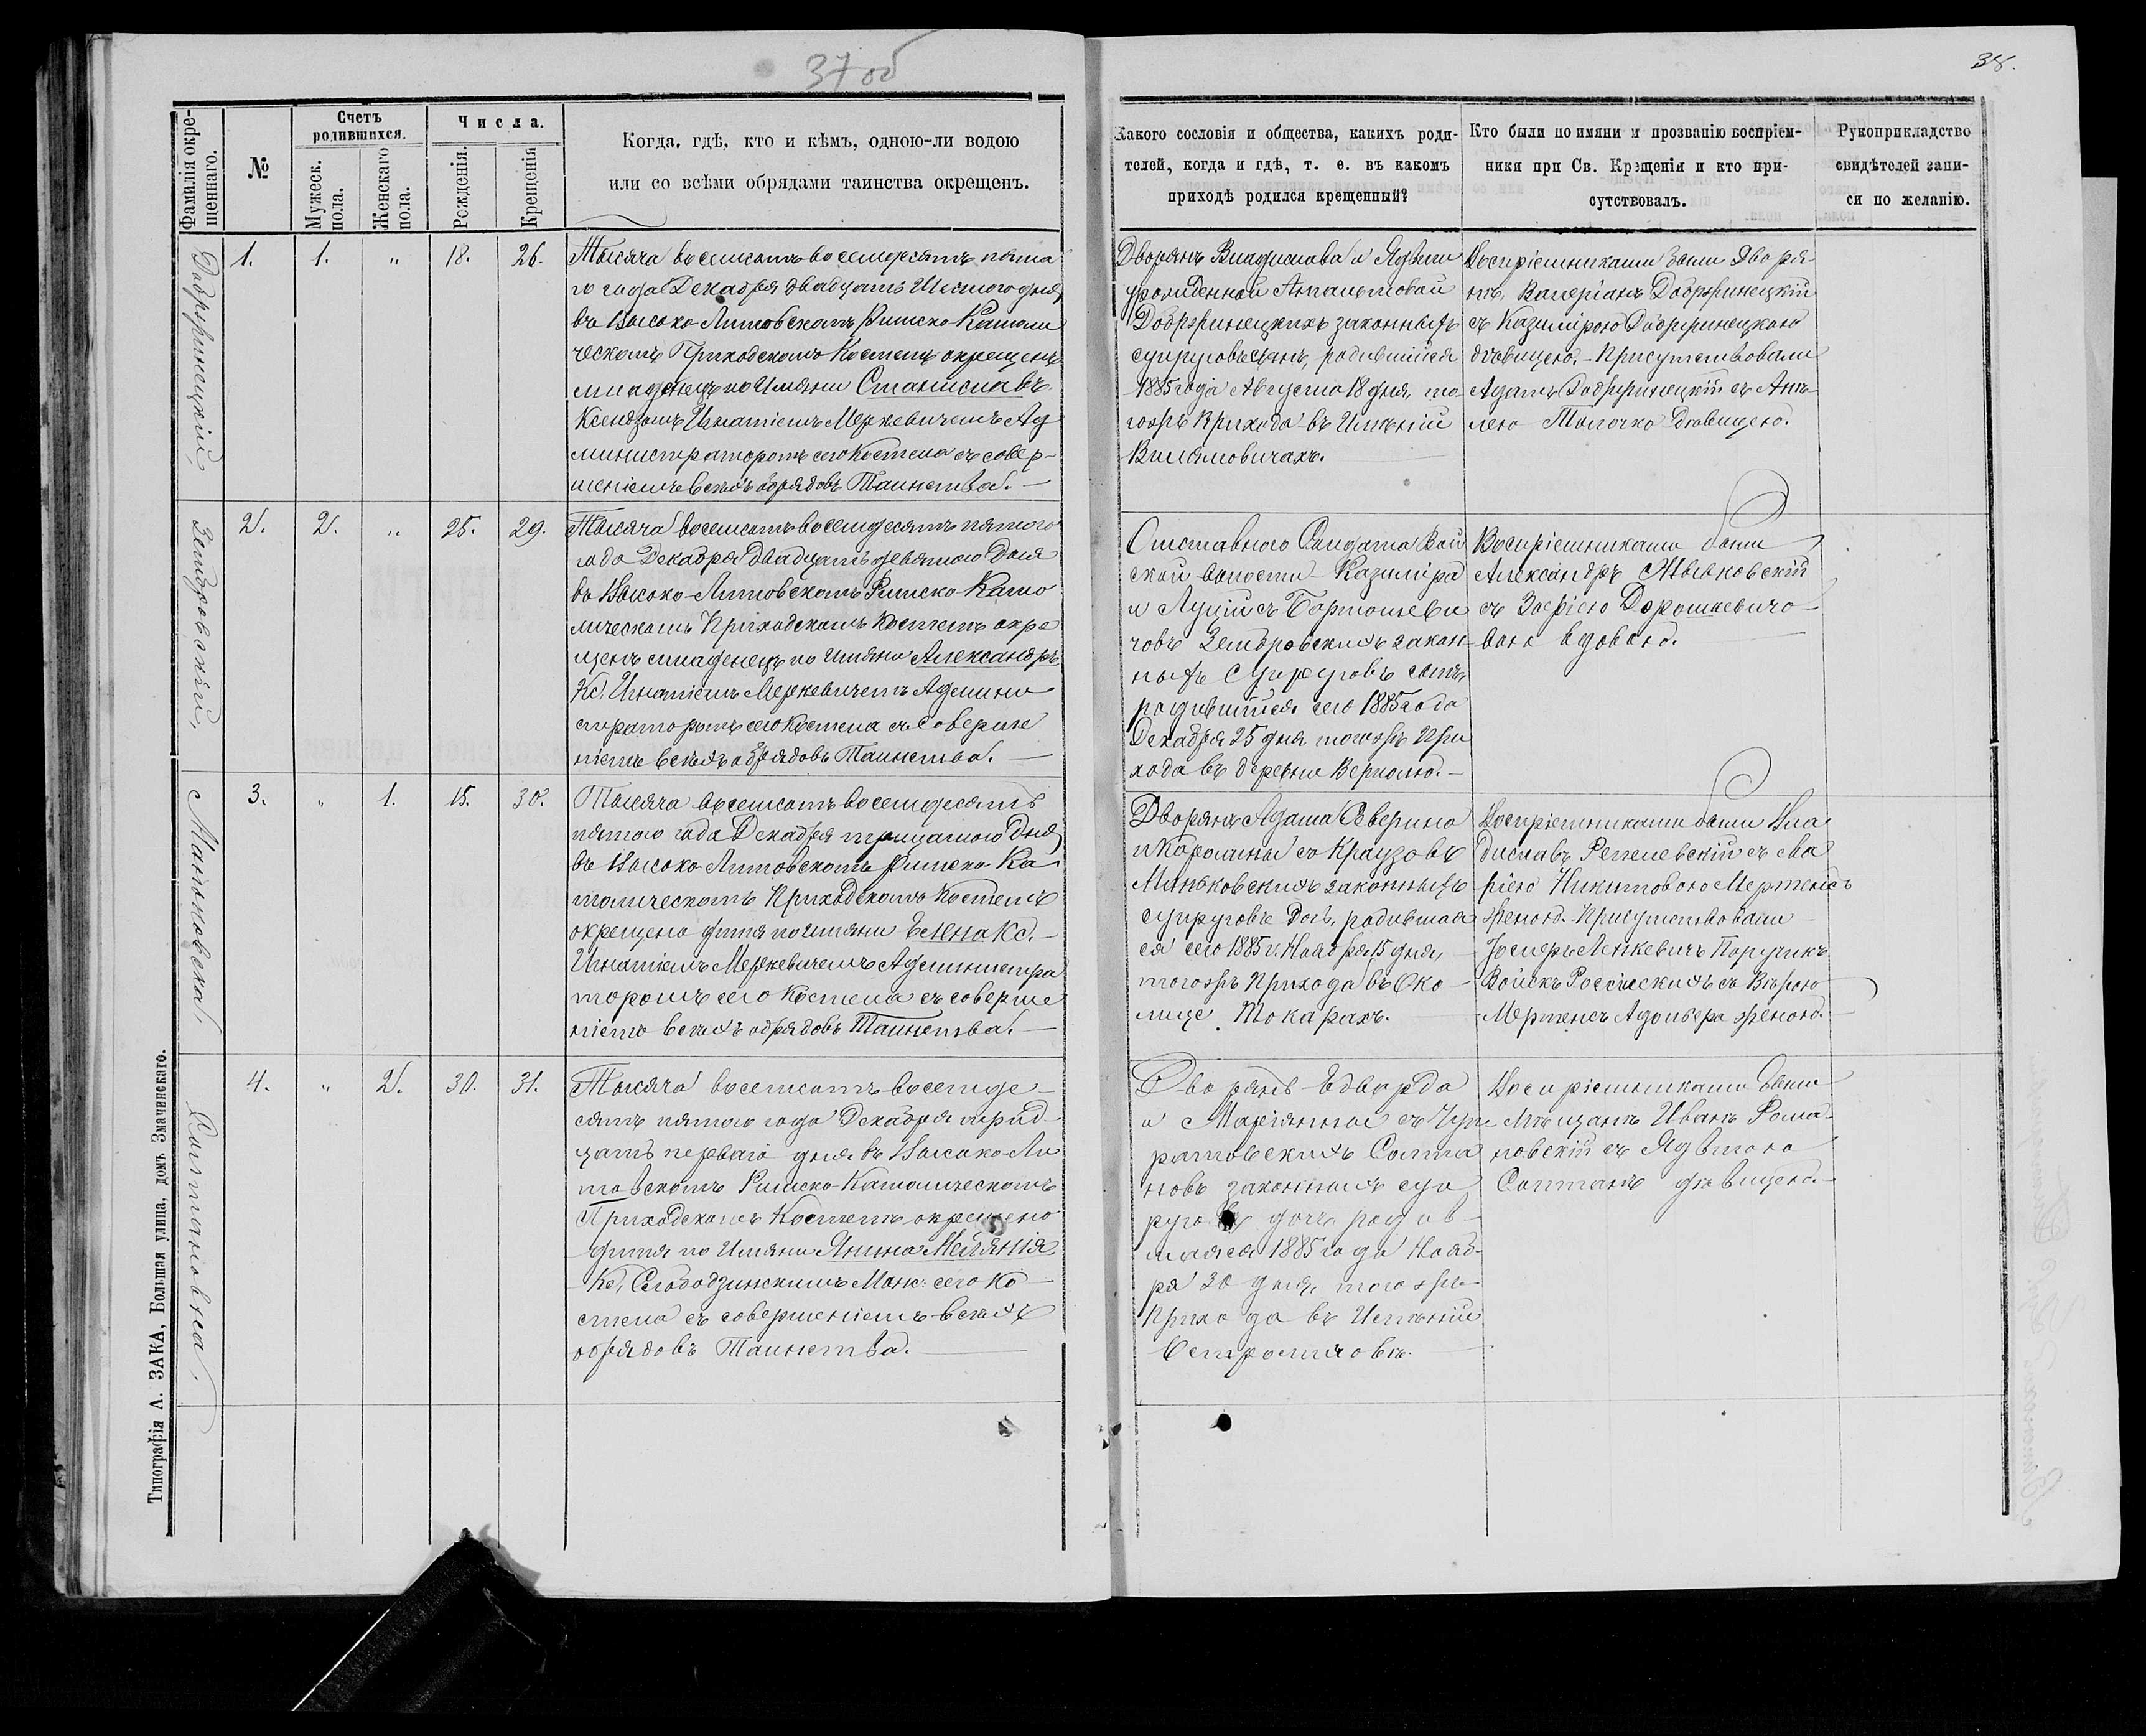 37 об
38.
Фамилія окре-
щеннаго.
№
Счетъ
родившихся.
Мужеск.
пола.
Женскаго
пола.
Числа.
Рожденія.
Крещенія
Когда, гдѣ, кто и кѣмъ, одною-ли водою
или со всѣми обрядами таинства окрещенъ.
Какого сословія и общества, какихъ роди-
телей, когда и гдѣ, т. е. въ какомъ
приходѣ родился крещенный?
Кто были по имяни и прозванію воспріем-
ники при Св. Крещенія и кто при-
сутствовалъ.
Рукоприкладство
свидѣтелей запи-
си по желанію.
Добржинецкій,
1.
1.
"
18.
26.
Тысяча восемсотъ восемдесятъ пята
го года Декабря двадцать Шестого дня,
въ Высоко-Литовскомъ Римско Католи
ческомъ Приходскомъ Костелѣ окрещенъ
младенецъ по Имяни Станиславъ
Ксендзомъ Игнатіемъ Меркевичемъ Ад
министраторомъ сего Костела съ совер-
шеніемъ всѣхъ обрядовъ Таинства. —
Дворянъ Владислава и Ядвиги
урожденной
Добржинецкихъ законныхъ
супруговъ сынъ, родившійся
1885 года Августа 18 дня, то-
гожъ Прихода въ Имѣніи
Вилямовичахъ.
Воспріемниками были Дворя-
нъ, Валеріанъ Добржинецкій
съ Казимірою Добржинецкою
дѣвицею. - Присутствовали
Адамъ Добржинецкій съ Анѣ-
лею Толочко Дѣвицею.
2.
2.
"
25.
29.
Тысяча восемсотъ восемдесятъ пятого
года Декабря двадцать девятого Дня
въ Высоко-Литовскомъ Римско Като
лическомъ Приходскомъ Костелѣ окре
щенъ младенецъ по Имяни Александръ
Кс. Игнатіемъ Меркевичемъ Админи
страторомъ сего Костела съ соверше
ніемъ всѣхъ обрядовъ Таинства. —
Отставного Солдата Вой
ской волости Казиміра
и Луціи съ Бартошеви
човъ закон-
ныхъ Супруговъ сынъ,
родившійся сего 1885 года
Декабря 25 дня тогожъ При
хода въ деревни
Воспріемниками были
Александръ
съ Зофіею Дорошкевичо-
вою вдовою.
Маньковская,
3.
"
1.
15.
30.
Тысяча восемсотъ восемдесятъ
пятого года Декабря тридцатого Дня,
въ Высоко Литовскомъ Римско Ка-
толическомъ Приходскомъ Костелѣ
окрещено дитя по имяни Елена Кс.
Игнатіемъ Меркевичемъ Администра
торомъ сего Костела съ соверше
ніемъ всѣхъ обрядовъ Таинства. —
Дворянъ Адама Северина
и Каролины съ Краузовъ
Маньковскихъ законныхъ
супруговъ дочь, родившая
ся сего 1885 г. Ноября 15 дня,
тогожъ Прихода въ Око-
лице Токарахъ.
Воспріемниками были Вла
диславъ съ Ма
ріею Никитовою Мертенсъ
женою. Присутствовали
Іосифъ Ленкевичъ Поручикъ
Войскъ Россійскихъ съ Вѣрою
Мертенсъ женою.
Солтановна,
4.
"
2.
30.
31.
Тысяча восемсотъ восемде
сятъ пятого года Декабря трид-
цать перваго дня въ Высоко-Ли
товскомъ Римско-Католическомъ
Приходскомъ Костелѣ окрещено
дитя по Имяни Янина Меланія
Кс. Слободзинскимъ Манс: сего Ко
стела съ совершеніемъ всѣхъ
обрядовъ Таинства. —
Дворянъ Едварда
и Маріянны съ
Солта
новъ законныхъ суп
руговъ дочь родив-
шаяся 1885 года Нояб-
ря 30 дня, тогожъ
Прихода въ Имѣніи
Воспріемниками были
Мѣщанъ Иванъ Рома-
новскій съ Ядвигою
Солтанъ дѣвицею. —
Типографія А. ЗАКА, Большая улица, домъ Змачинскаго.